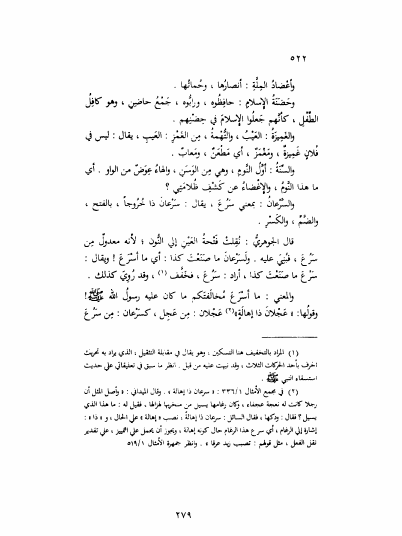 ٥٢٢
وأعْضادُ المِلَّةِ : أنصارُها ، وحُماتُها .
وحَضَنَةُ الإسلامِ : حافِظُوه ، ورابُّوه ، جَمْعُ حاضِنٍ ، وهو كافِلُ
الطِّفْلِ ، كأنَّهم جَعلُوا الإسلامَ في حِضْنِهم .
والغَمِيزَةُ : العَيْبُ ، والتُّهْمَةُ ، مِن الغَمْزِ : العَيبِ ، يقال : ليس في
فُلانٍ غَمِيزةٌ ، ومَغْمَزٌ ، أي مَطْعَنٌ ، ومَعابٌ .
والسِّنَةُ : أوَّلُ النَّومِ ، وهي مِن الوَسَنِ ، والهاءُ عِوَضٌ من الواو . أي
ما هذا النَّومُ ، والإغْضاءُ عن كَشْفِ ظُلامَتِي ؟
والسَّرْعانُ : بمعنى سَرُعَ ، يقال : سَرْعانَ ذا خُروجاً ، بالفتح ،
والضمِّ ، والكَسْرِ .
قال الجوهريُّ : نُقِلتْ فَتْحةُ العَيْنِ إلى النُّون ؛ لأنه معدولٌ مِن
سَرُعَ ، فبُنِيَ عليه . ولَسَرْعانَ ما صَنَعْتَ كذا : أي ما أَسْرَعَ ! ويقال :
سَرْعَ ما صَنَعْتَ كذا ، أراد : سَرُعَ ، فخَفَّف (١) ، وقد رُوِيَ كذلك .
والمعنى : ما أسْرَعَ مُخالفَتَكم ما كان عليه رسولُ الله ﷺ!
وقولُها: « عَجْلانَ ذا إهالةٍ»(٢) عَجْلانَ : مِن عَجِل ، كسَرْعان : مِن سَرُعَ
(١) المراد بالتخفيف هنا التسكين ، وهو يقال في مقابلة التثقيل ، الذي يراد به تحريك
الحرف بأحد الحركات الثلاث ، وقد نبهت عليه من قبل . انظر ما سبق في تعليقاتي على حديث
استسقاء النبي ﷺ .
(٢) في مجمع الأمثال ٣٣٦/١ : « سرعان ذا إهالة » . وقال الميداني : « وأصل المثل أن
رجلا كانت له نعجة عجفاء ، وكان رغامها يسيل من منخريها لهزالها ، فقيل له : ما هذا الذي
يسيل ؟ فقال : ودكها ، فقال السائل : سرعان ذا إهالةً ، نصب « إهالة » على الحال ، و « ذا » :
إشارة إلى الرغام ، أي سرع هذا الرغام حال كونه إهالة ، ويجوز أن يحمل على التمييز ، على تقدير
نقل الفعل ، مثل قولهم : تصبب زيد عرقا » . وانظر جمهرة الأمثال ٥١٩/١
٢٧٩